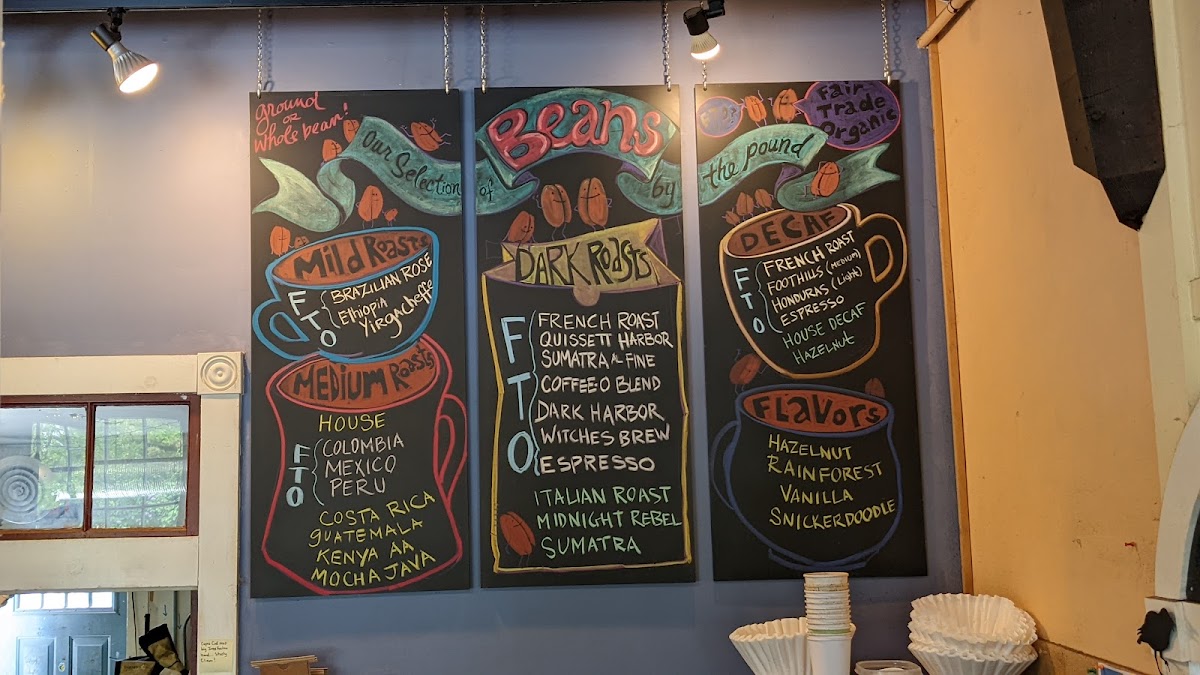 ground
or
whole bean!
Our Selection of Beans by the pound
FTO =
Fair
Trade
Organic
Mild Roasts
FTO
BRAZILIAN ROSE
Ethiopia
Yirgacheffe
MEDIUM Roasts
HOUSE
FTO
COLOMBIA
MEXICO
PERU
COSTA RICA
GUATEMALA
KENYA AA
MOCHA JAVA
DARK Roasts
FTO
FRENCH ROAST
QUISSETT HARBOR
SUMATRA FINE
COFFEE-O BLEND
DARK HARBOR
WITCHES BREW
ESPRESSO
ITALIAN ROAST
MIDNIGHT REBEL
SUMATRA
DECAF
FTO
FRENCH ROAST
FOOTHILLS (MEDIUM)
HONDURAS (Light)
ESPRESSO
HOUSE DECAF
HAZELNUT
FLavors
HAZELNUT
RAINFOREST
VANILLA
SNICKERDOODLE